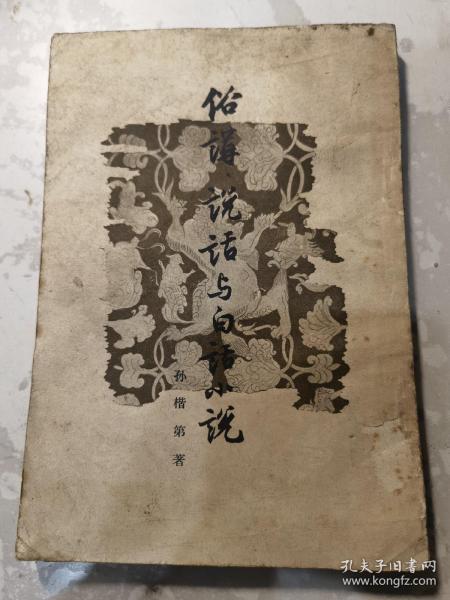 俗講、說話与白話小說
孙楷第著
孔夫子旧书网
www.kongfz.com